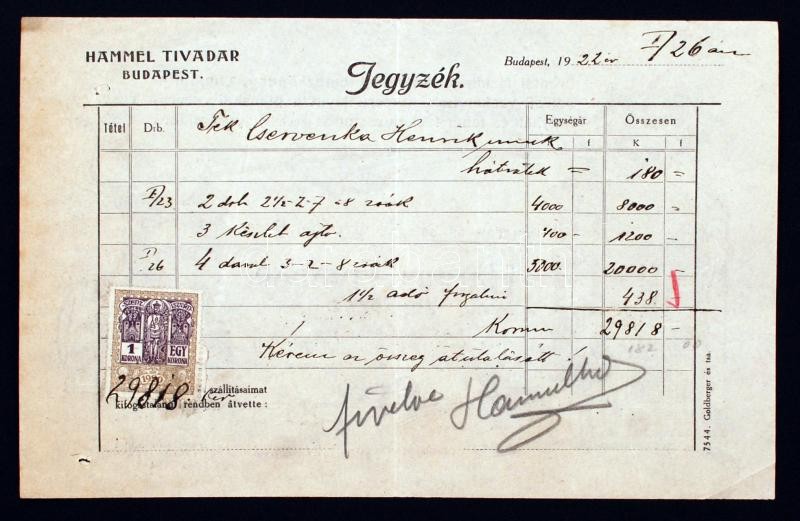 HAMMEL TIVADAR
BUDAPEST.
Jegyzék.
Budapest, 1922 év I/26 án
Tétel Drb. Egységár Összesen
K f K f
Tek Cservenka Henrik urnak
hátralék = 180 =
I/23 2 drb 8 4000 8000 -
3 készlet ajtó. 400 - 1200 -
I/26 4 darab 3-2-8 5000 20000 -
1 1/2 adó forgalmi 438
Korona 29818 -
182 00
Kérem az összeg átutalását!
1 KORONA EGY KORONA
29818 szállításaimat
kifogástalanul rendben átvette:
fizetve Hammel
7544. Goldberger és tsa.